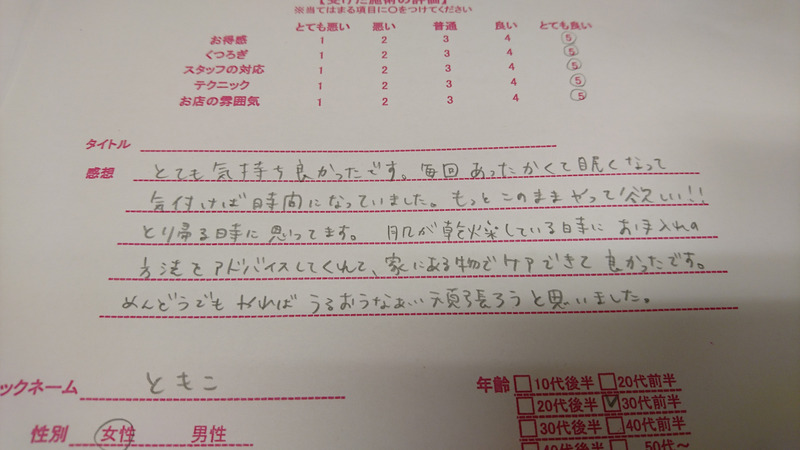 【受けた施術の評価】
※当てはまる項目に○をつけてください
とても悪い 悪い 普通 良い とても良い
お得感 1 2 3 4 5
くつろぎ 1 2 3 4 5
スタッフの対応 1 2 3 4 5
テクニック 1 2 3 4 5
お店の雰囲気 1 2 3 4 5
タイトル
感想 とても気持ち良かったです。毎回あったかくて眠くなって
気付けば時間になっていました。もっとこのままやって欲しい!!
とり帰る時に思ってます。肌が乾燥している時にお手入れの
方法をアドバイスしてくれて、家にある物でケアできて良かったです。
めんどうでもやればうるおうなぁい頑張ろうと思いました。
ックネーム ともこ
性別 女性 男性
年齢 10代後半 20代前半
20代後半 30代前半
30代後半 40代前半
40代後半 50代~